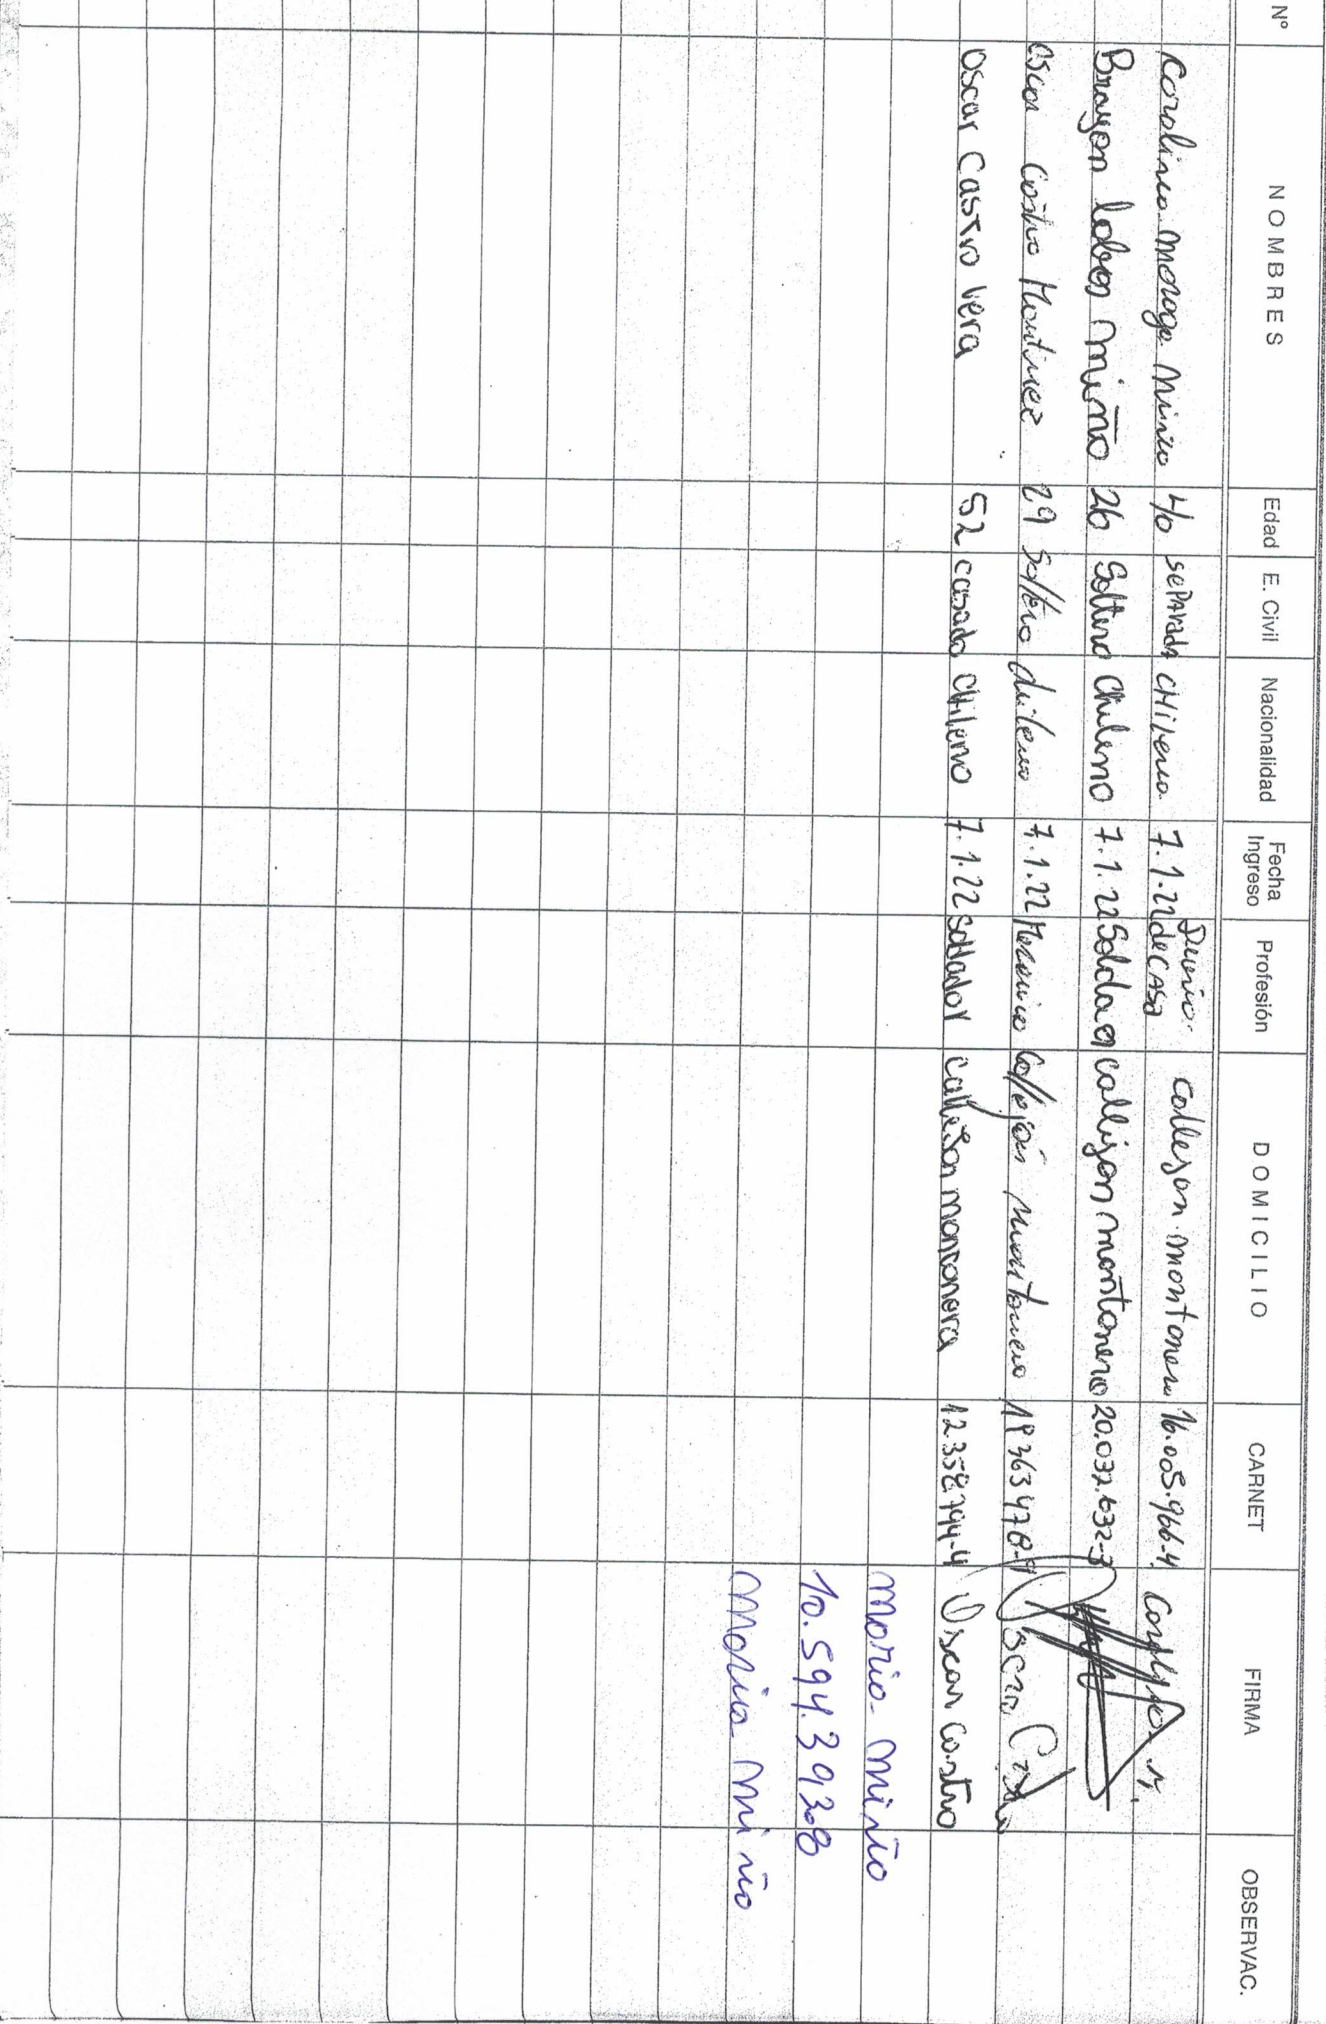 Nº NOMBRES Edad E. Civil Nacionalidad Fecha Ingreso Profesión DOMICILIO CARNET FIRMA OBSERVAC.
Carolina Moraga Miño 40 sepArada CHilena 7.1.22 Dueña de CASA Callejon montonera 16.005.966-4
Brayan lobos miño 26 Soltero Chileno 7.1.22 Soldador callijon montonero 20.032.632-3
Oscar Castro Martinez 29 Soltero chileno 7.1.22 Mecanico Callejón montonero 19363478-9 Oscar Castro
Oscar Castro Vera 52 casado CHileno 7.1.22 Soldador calleson montonera 12.358.794-4 Oscar Castro
Maria Miño
10.594.393-8
Maria Miño